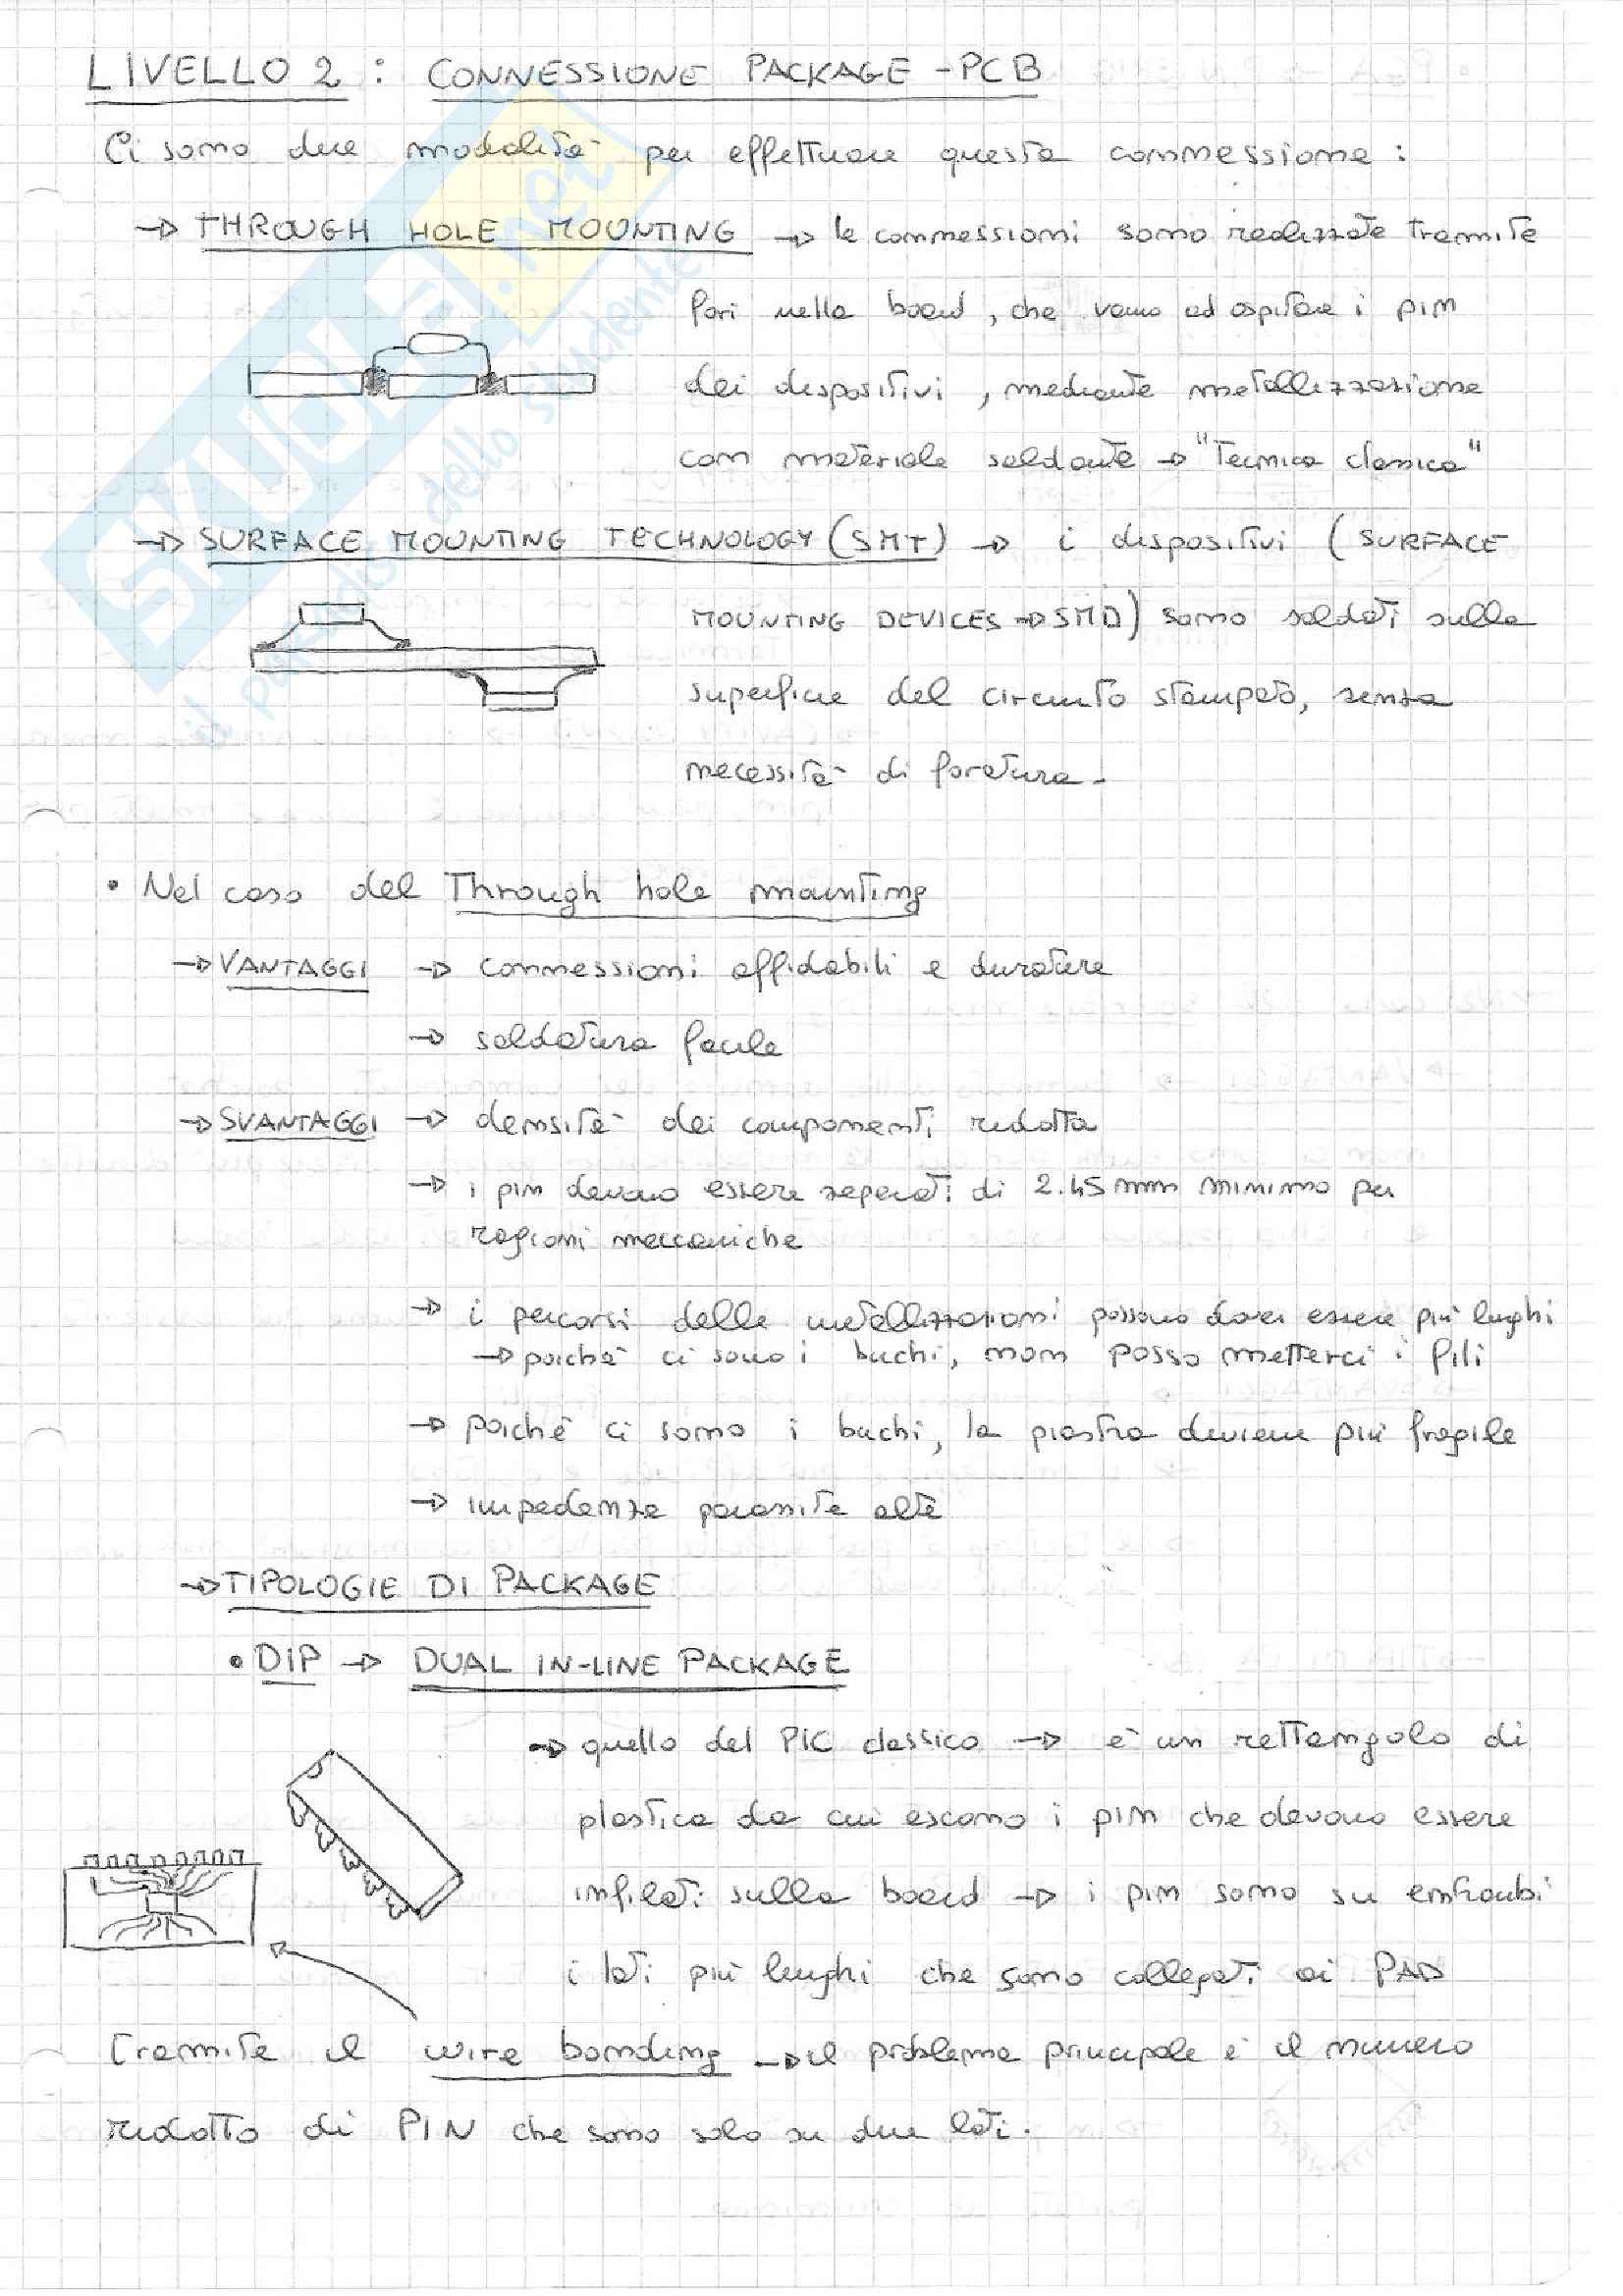 LIVELLO 2 : CONNESSIONE PACKAGE - PCB
Ci sono due modalità per effettuare questa connessione :
→ THROUGH HOLE MOUNTING → le connessioni sono realizzate tramite
fori nella board, che vanno ad ospitare i pin
dei dispositivi, mediante metallizzazione
con materiale saldante → "Tecnica classica"
→ SURFACE MOUNTING TECHNOLOGY (SMT) → i dispositivi (SURFACE
MOUNTING DEVICES → SMD) sono saldati sulla
superficie del circuito stampato, senza
necessità di foratura.
• Nel caso del Through hole mounting
→ VANTAGGI → connessioni affidabili e durature
→ saldatura facile
→ SVANTAGGI → densità dei componenti ridotta
→ i pin devono essere separati di 2.45 mm minimo per
ragioni meccaniche
→ i percorsi delle metallizzazioni possono dover essere più lunghi
→ poiché ci sono i buchi, non posso metterci i fili
→ poiché ci sono i buchi, la piastra diviene più fragile
→ impedenze parassite alte
→ TIPOLOGIE DI PACKAGE
• DIP → DUAL IN-LINE PACKAGE
→ quello del PIC classico → è un rettangolo di
plastica da cui escono i pin che devono essere
infilati sulla board → i pin sono su entrambi
i lati più lunghi che sono collegati ai PAD
tramite il wire bonding → il problema principale è il numero
ridotto di PIN che sono solo su due lati.
SKUOLA.net
il paradiso dello studente